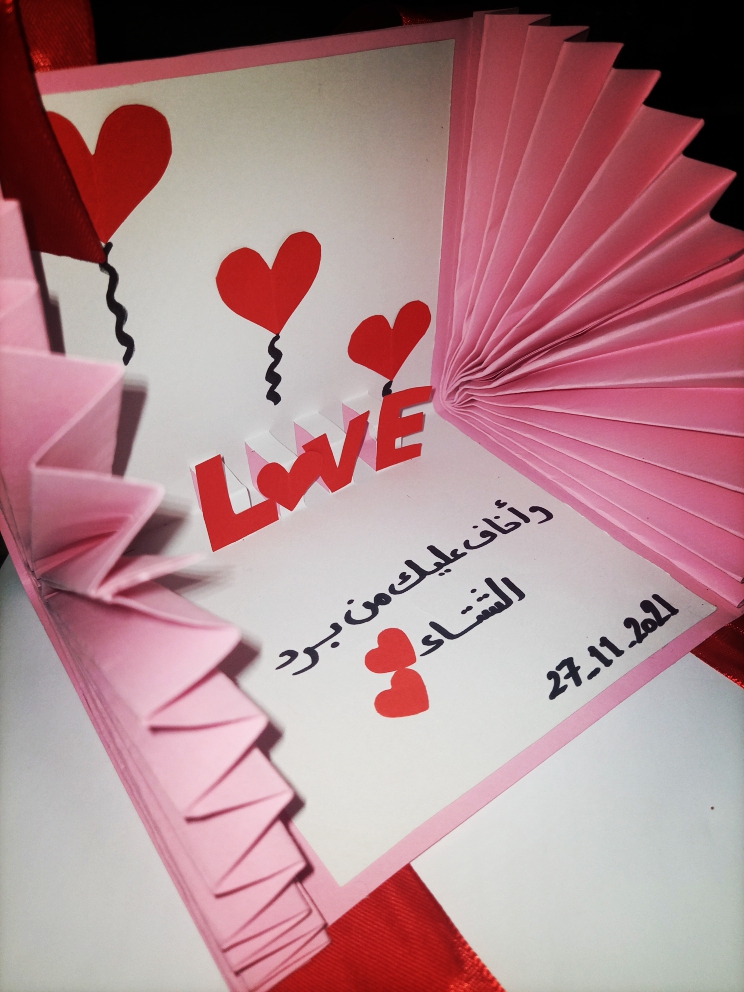 LOVE
وأخاف عليك من برد
الشتاء
27_11_2021